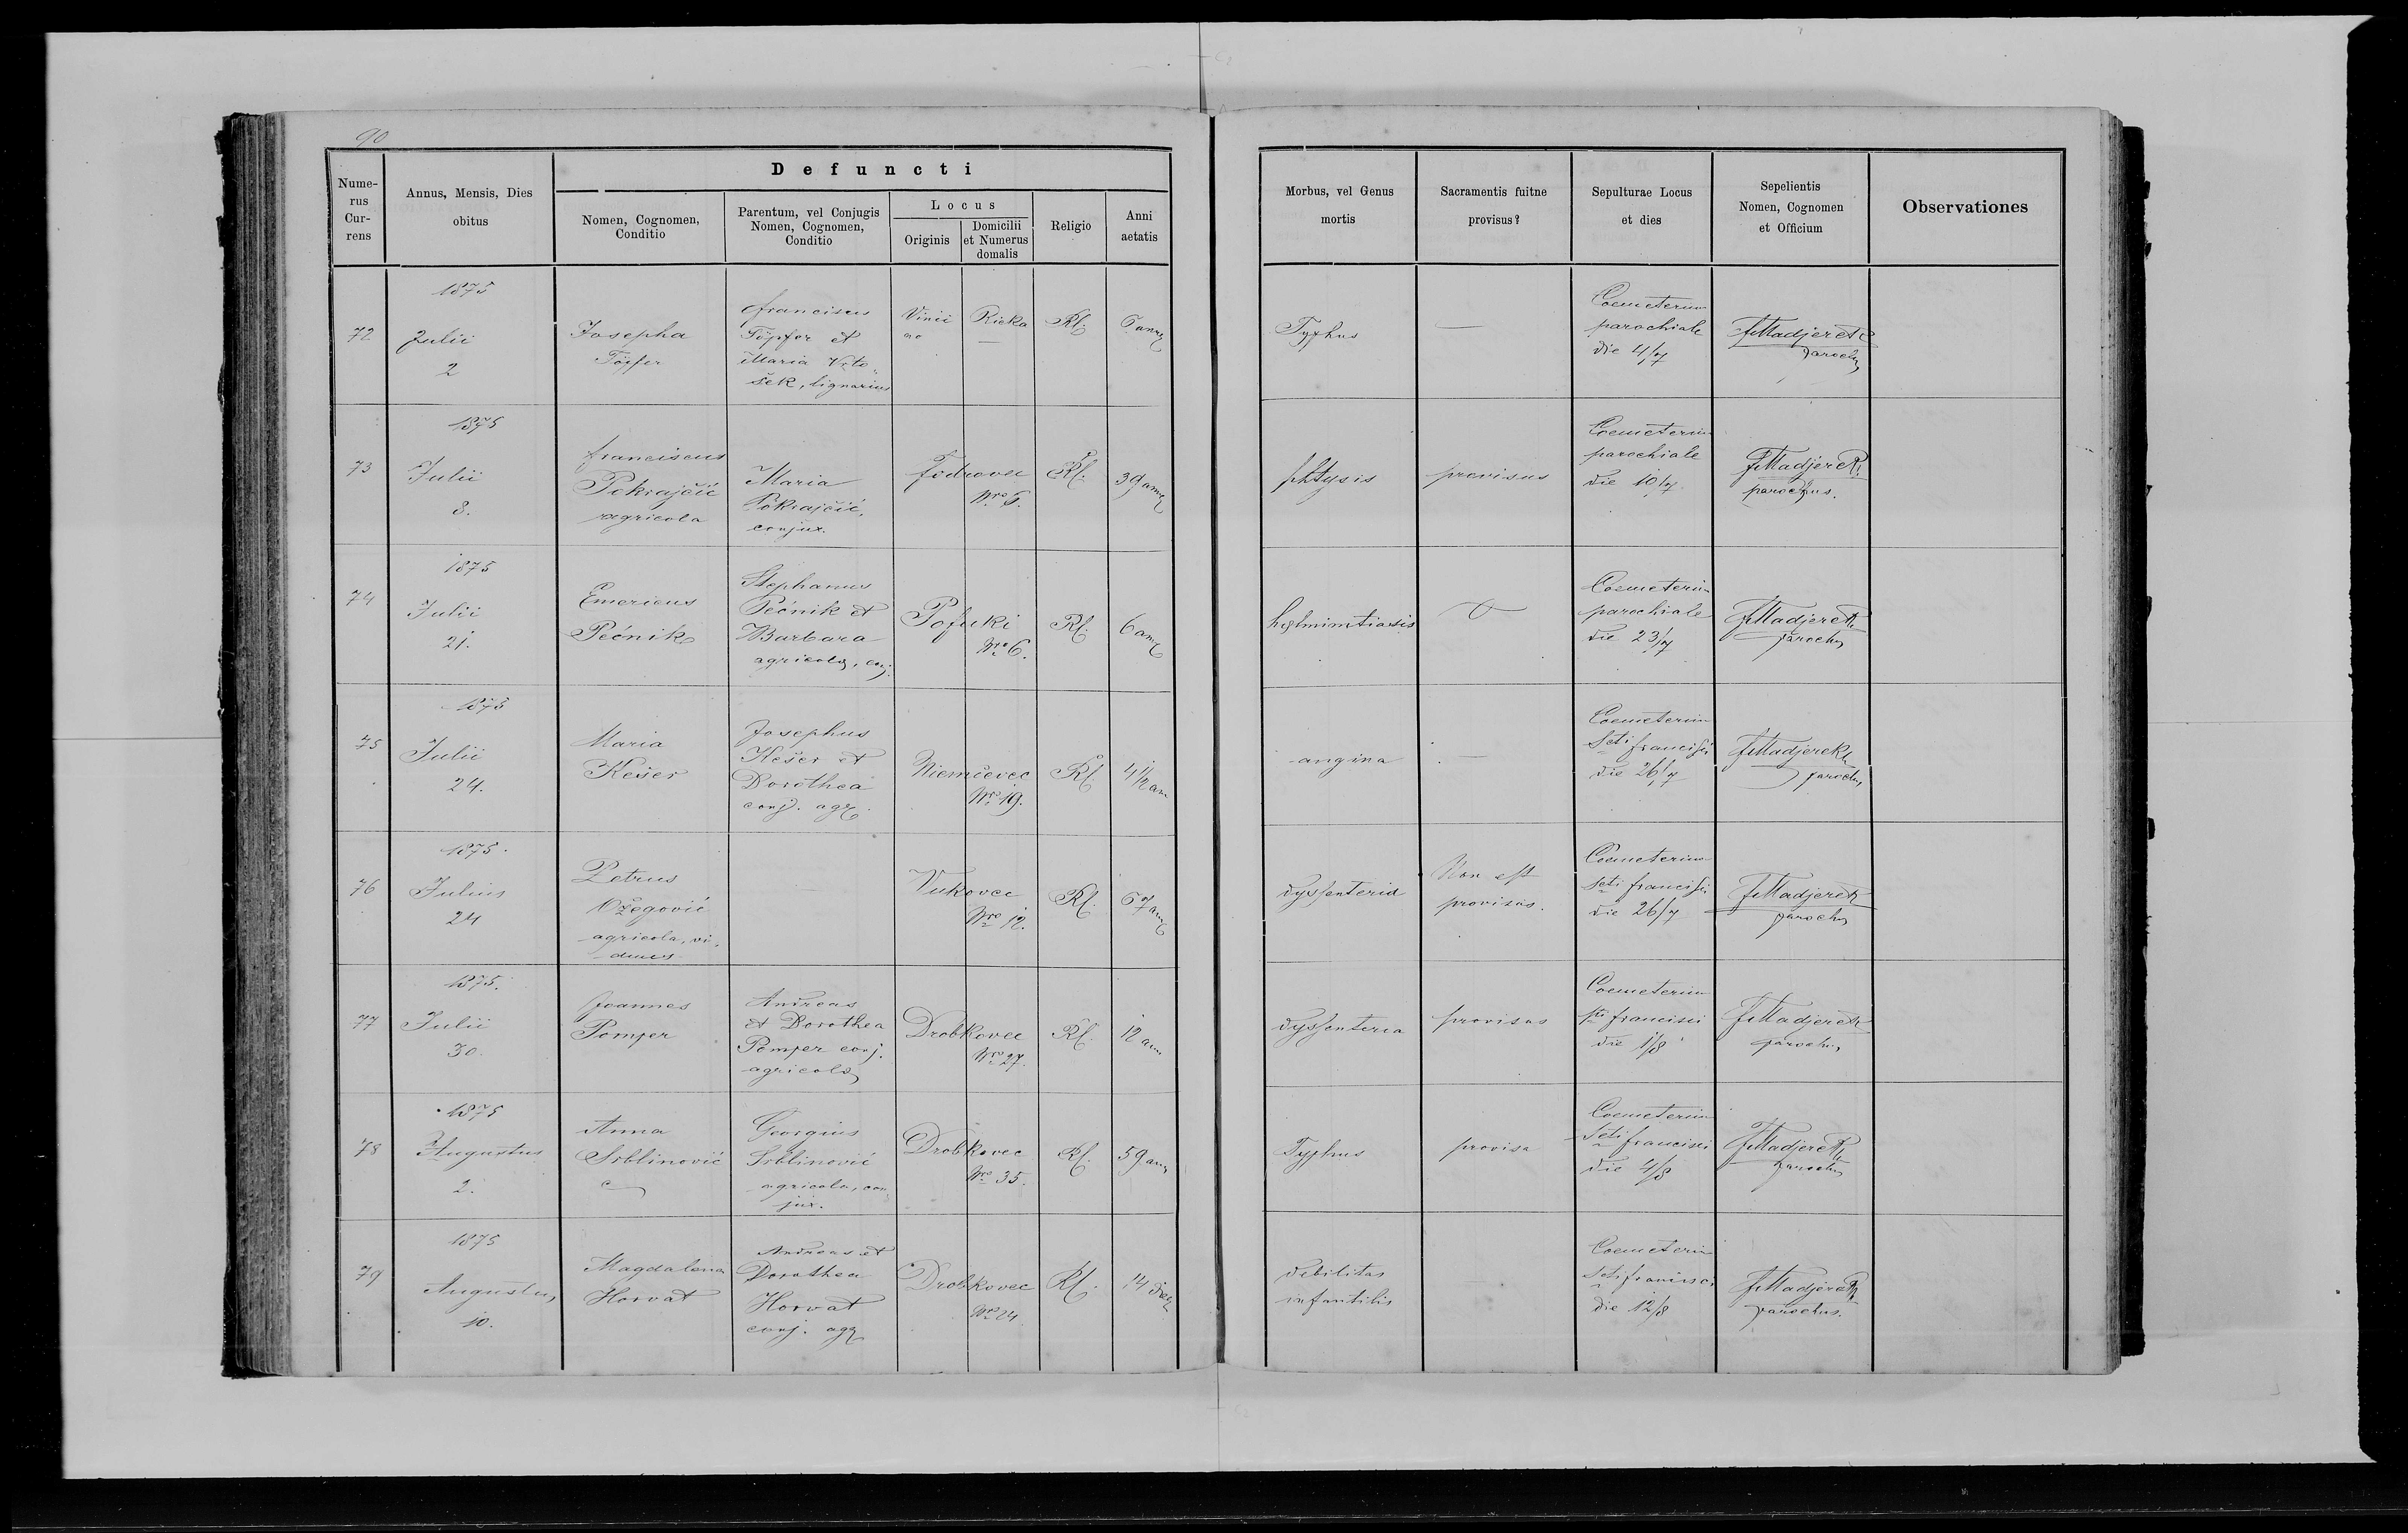 90
Defuncti
Nume-
rus
Cur-
rens
Annus, Mensis, Dies
obitus
Nomen, Cognomen,
Conditio
Parentum, vel Conjugis
Nomen, Cognomen,
Conditio
Locus
Originis
Domicilii
et Numerus
domalis
Religio
Anni
aetatis
Morbus, vel Genus
mortis
Sacramentis fuitne
provisus?
Sepulturae Locus
et dies
Sepelientis
Nomen, Cognomen
et Officium
Observationes
72
1875
Julii
2
Josepha
Töpfer
Franciscus
Töpfer et
Maria Vrto„
šek, lignarius
Vinii
Rieka
—
Rk.
6
Typhus
—
Coemeterium
parochiale
die 4/7
FMadjerek
parochus
73
1875
Julii
8.
Franciscus
Pokrajčić
agricola
Maria
Pokrajčić,
conjux.
Fodrovec
Nro 6.
Rk.
39
phtysis
provisus
Coemeterium
parochiale
die 10/7
FMadjerek
parochus.
74
1875
Julii
21.
Emericus
Pećnik
Stephanus
Pećnik et
Barbara
agricolae, conj.
Pofuki
Nro 6.
Rk.
6
helmintiasis
Coemeterium
parochiale
die 23/7
FMadjerek
parochus
75
1875
Julii
24.
Maria
Kešer
Josephus
Kešer et
Dorothea
conj. agr.
Niemčevec
Nro 19.
Rk.
4 1/2 ann
angina
—
Coemeterium
Scti Francisci
die 26/7
FMadjerek
parochus
76
1875.
Julius
24
Petrus
Ožegović
agricola, vi„
duus
Vukovec
Nro 12.
Rk.
67
dyssenteria
Non est
provisus.
Coemeterium
Scti Francisci
die 26/7
FMadjerek
parochus
77
1875.
Julii
30.
Joannes
Pomper
Andreas
et Dorothea
Pomper conj.
agricolae
Drobkovec
Nro 27.
Rk.
12 ann
dyssenteria
provisus
Coemeterium
Sti Francisci
die 1/8
FMadjerek
parochus
78
1875
Augustus
2.
Anna
Srblinović
Georgius
Srblinović
agricola, con„
jux.
Drobkovec
Nro 35.
Rk.
59
Typhus
provisa
Coemeterium
Scti Francisci
die 4/8
FMadjerek
parochus
79
1875
Augustus
10.
Magdalena
Horvat
Andreas et
Dorothea
Horvat
conj. agr
Drobkovec
Nro 24
Rk.
14 dies
debilitas
infantilis
Coemeterium
Scti Francisci
die 12/8
FMadjerek
parochus.